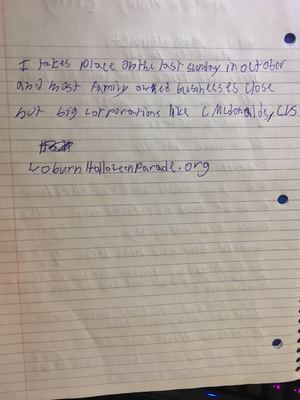 I takes place on the last sunday in october
and most family owned businesses close
but big corporations like C Mcdonalds, CVS
woburnHalloweenParade.org